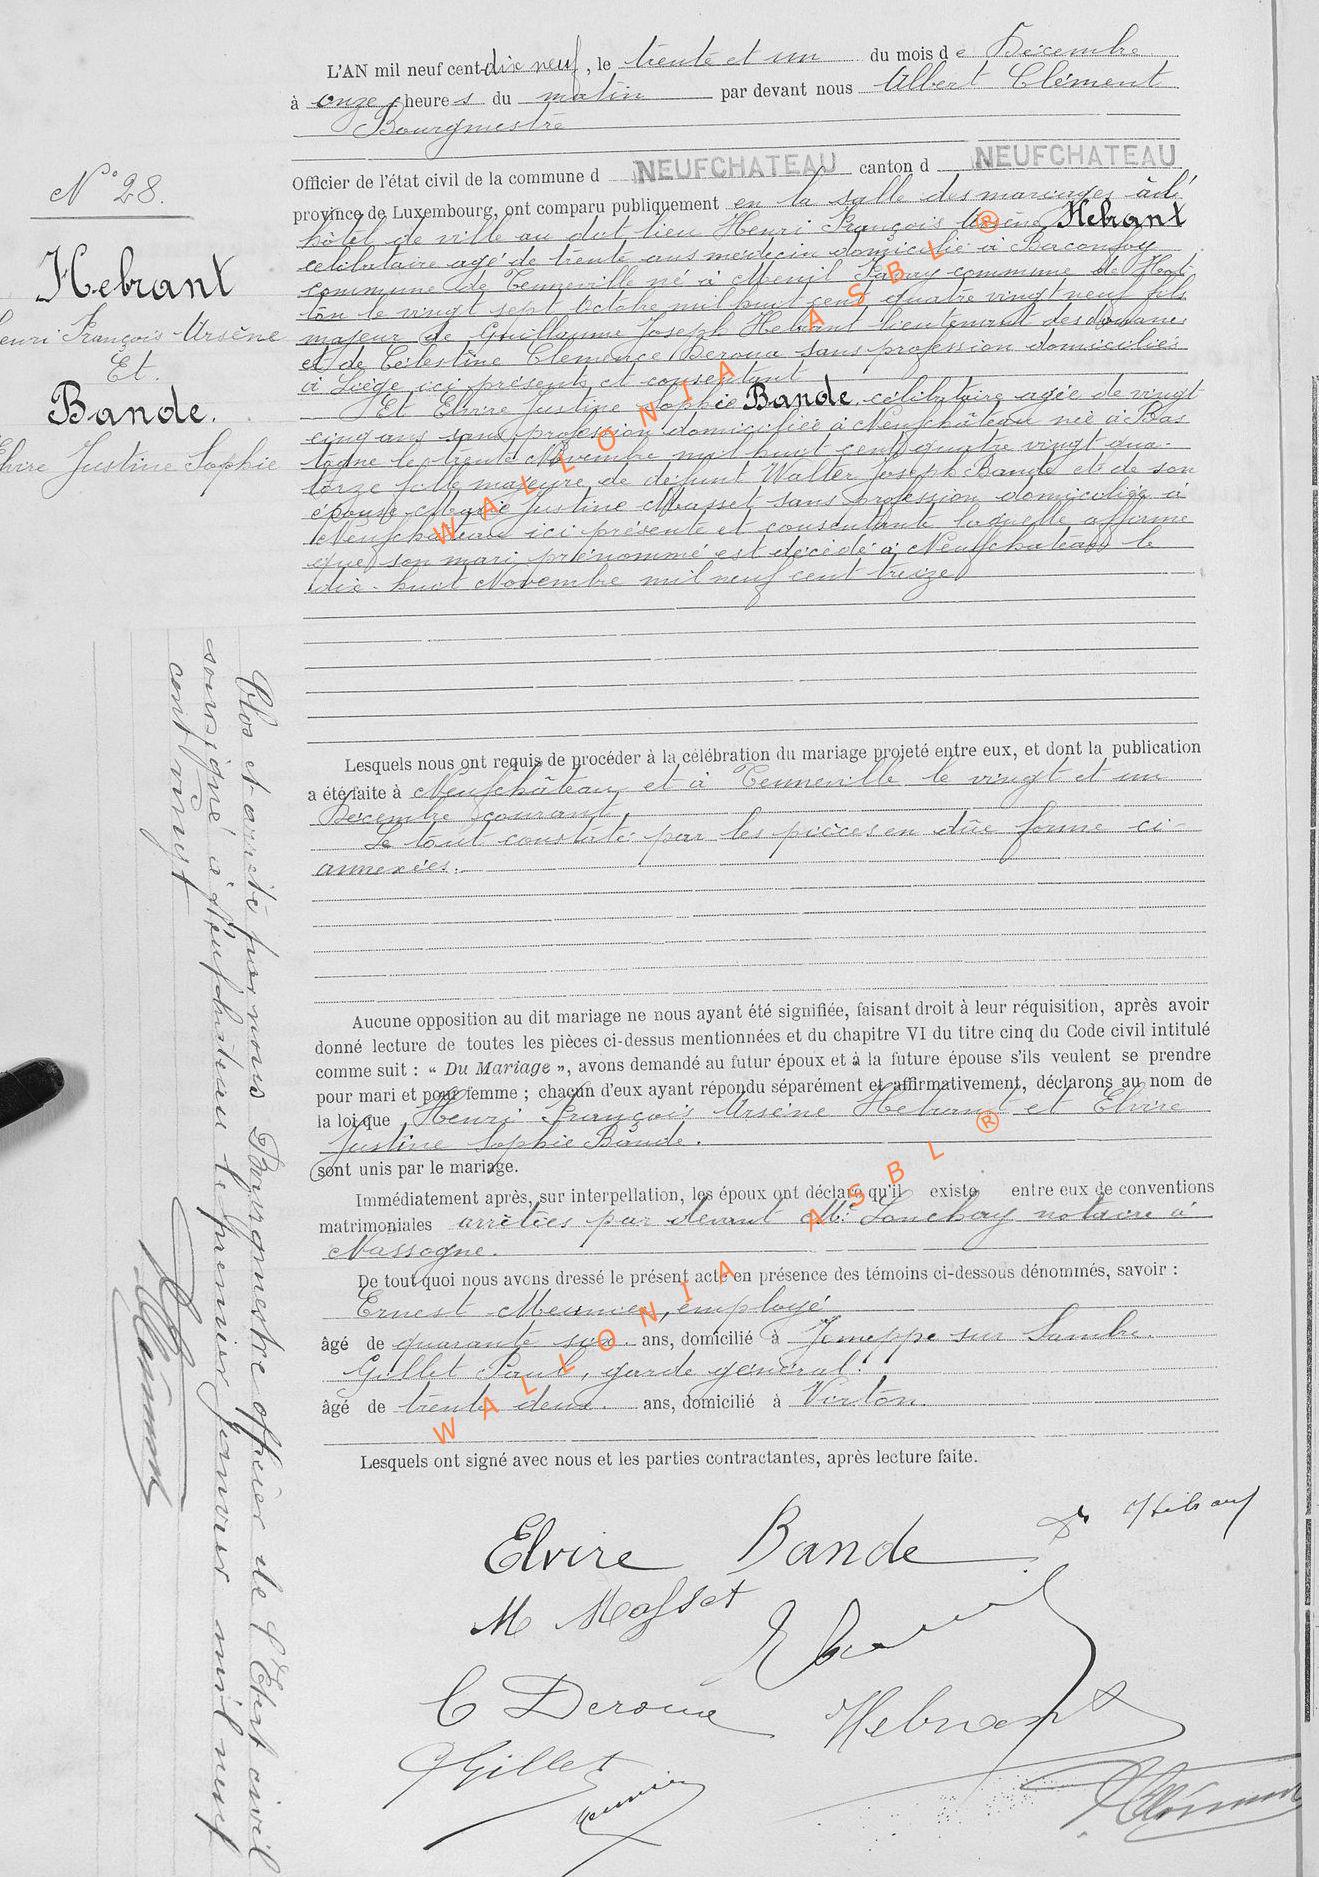 L'AN mil neuf cent dix neuf, le trente et un du mois de Décembre
à onze heures du matin par devant nous Albert Clément
Bourgmestre
Officier de l'état civil de la commune d NEUFCHATEAU canton d NEUFCHATEAU
province de Luxembourg, ont comparu publiquement en la salle des mariages à l'
hôtel de ville au dit lieu Henri François Ursène Hebrant
célibataire agé de trente ans médecin domicilié à
commune de Tenneville né à Mesnil Favay commune de Hod
ton le vingt sept Octobre mil huit cent quatre vingt neuf fils
majeur de Guillaume Joseph Hebrant lieutenant des douanes
et de Célestine Clémence Deroua sans profession domiciliés
à Liège ici présents et consentant
Et Elvire Justine Sophie Bande célibataire agée de vingt
cinq ans sans profession domiciliée à Neufchâteau née à Bas
togne le trente Novembre mil huit cent quatre vingt qua-
torze fille majeure de défunt Walter Joseph Bande et de son
épouse Marie Justine Masset sans profession domiciliée à
Neufchâteau ici présente et consentante laquelle affirme
que son mari prénommé est décédé à Neufchateau le
dix-huit Novembre mil neuf cent treize
N° 28.
Hebrant
Henri François Ursène
Et.
Bande.
Elvire Justine Sophie
Lesquels nous ont requis de procéder à la célébration du mariage projeté entre eux, et dont la publication
a été faite à Neufchâteau et à Tenneville le vingt et un
Décembre courant
Le tout constaté par les pièces en due forme ci-
annexées.
Aucune opposition au dit mariage ne nous ayant été signifiée, faisant droit à leur réquisition, après avoir
donné lecture de toutes les pièces ci-dessus mentionnées et du chapitre VI du titre cinq du Code civil intitulé
comme suit : « Du Mariage », avons demandé au futur époux et à la future épouse s'ils veulent se prendre
pour mari et pour femme ; chacun d'eux ayant répondu séparément et affirmativement, déclarons au nom de
la loi que Henri François Ursène Hebrant et Elvire
Justine Sophie Bande.
sont unis par le mariage.
Immédiatement après, sur interpellation, les époux ont déclaré qu'il existe entre eux de conventions
matrimoniales arrêtées par devant Me Lonchay notaire à
Nassogne.
De tout quoi nous avons dressé le présent acte en présence des témoins ci-dessous dénommés, savoir :
Ernest Meunier, employé
âgé de quarante six ans, domicilié à Jemeppe sur Sambre.
Gillet Paul, garde général.
âgé de trente deux. ans, domicilié à Virton.
Lesquels ont signé avec nous et les parties contractantes, après lecture faite.
Clos et arrêté par nous Bourgmestre officier de l'Etat civil
soussigné à Neufchâteau le premier janvier mil neuf
cent vingt
A Clément
Elvire Bande Dr Hebrant
M Masset
C Deroua Hebrant
Gillet
Meunier
A Clément
WALLONIA ASBL ®
WALLONIA ASBL ®